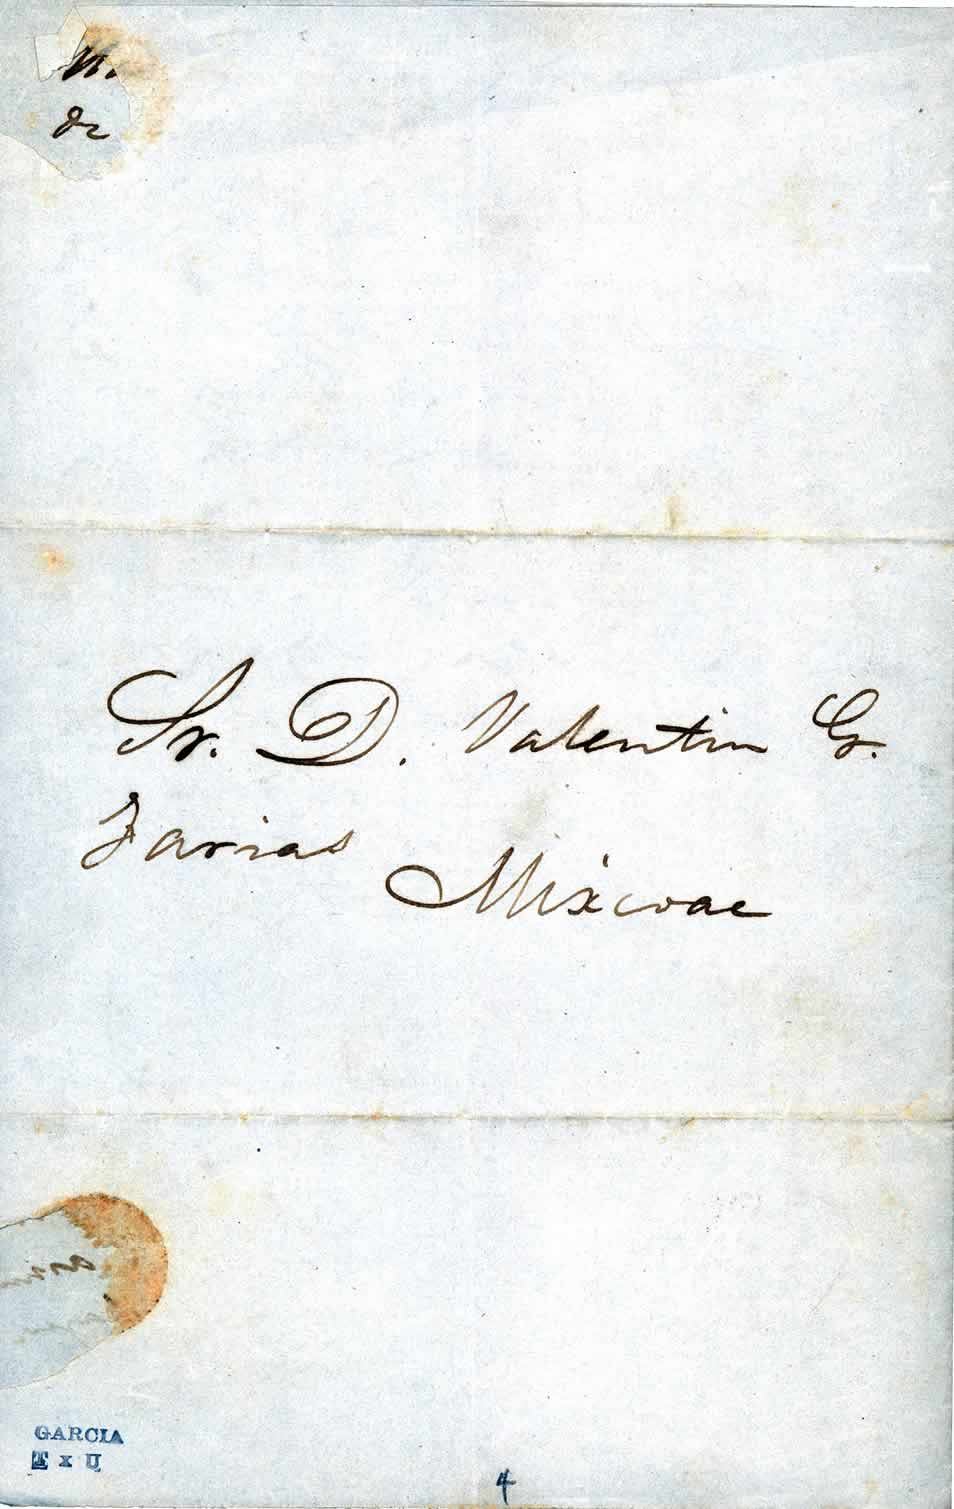 de
Sr. D. Valentin G.
Farias
Mixcoac
GARCIA
T x U
4